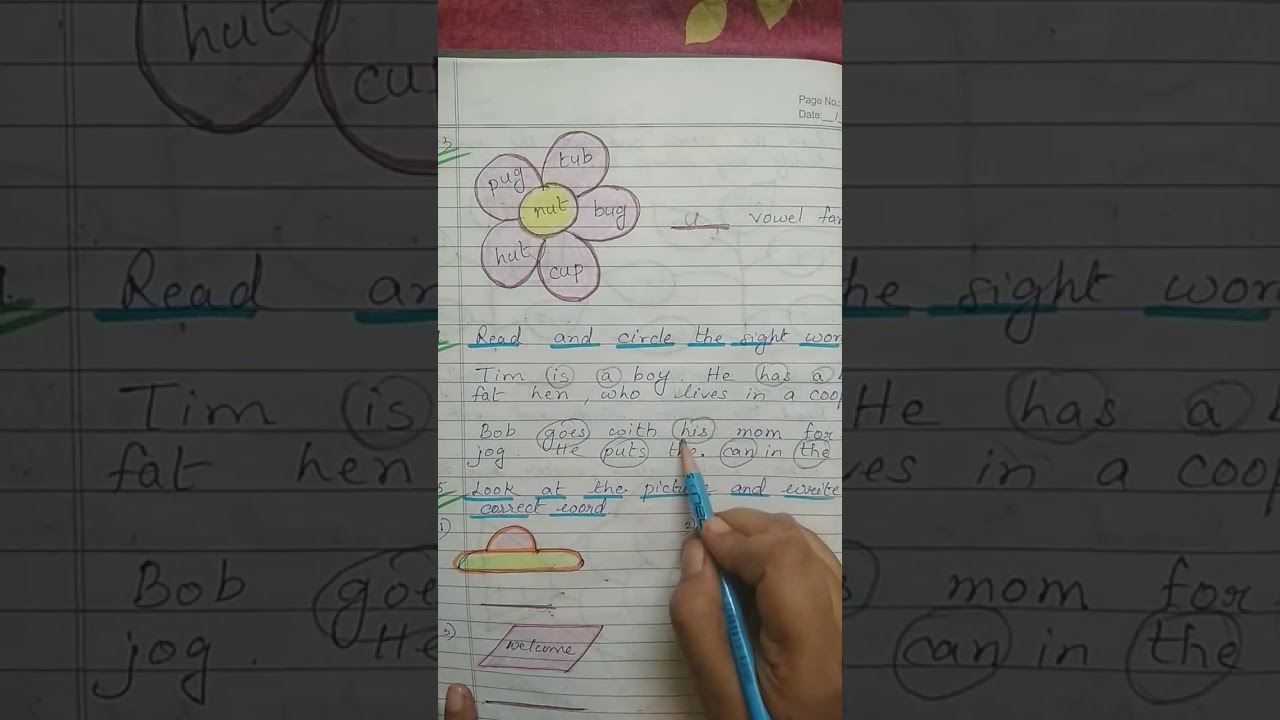 Page No.:
Date:__/_
3
tub
pug
nut
bug
hut
cup
u vowel fa
Read and circle the sight wor
Tim is a boy. He has a
fat hen, who lives in a coop
Bob goes with his mom for
jog. He puts the can in the
5 Look at the picture and write
correct word
1)
2)
3)
welcome